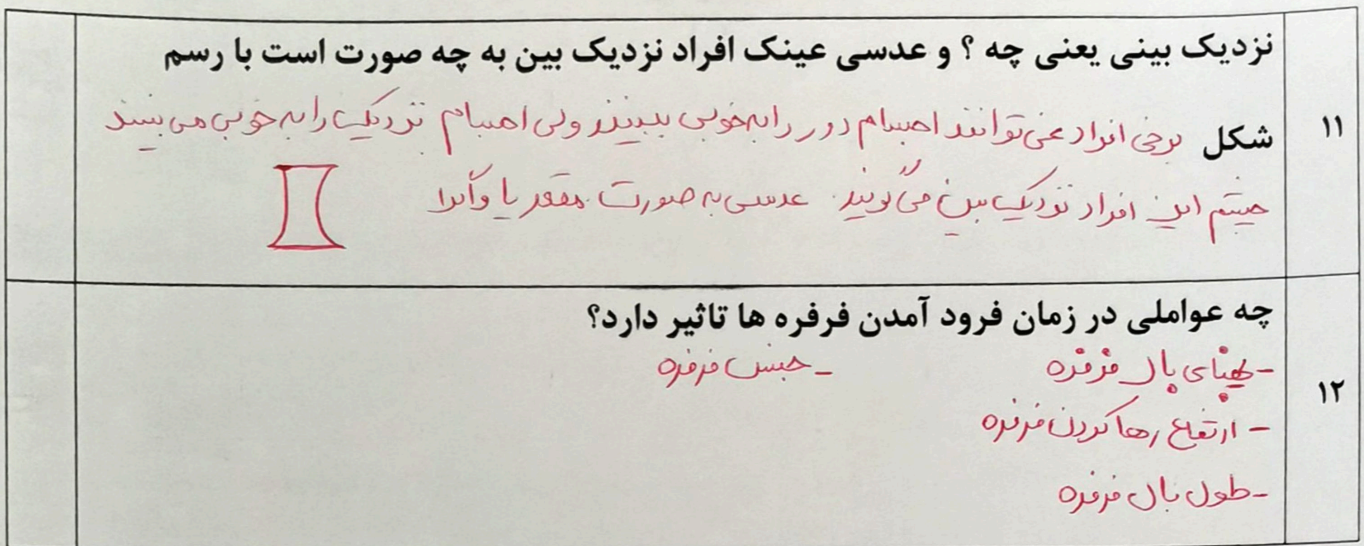 نزدیک بینی یعنی چه ؟ و عدسی عینک افراد نزدیک بین به چه صورت است با رسم
۱۱
شکل برخی افراد نمی توانند اجسام دور را به خوبی ببینند ولی اجسام نزدیک را به خوبی می بینند
چشم این افراد نزدیک بین می گویند. عدسی به صورت مقعر یا واگرا
چه عواملی در زمان فرود آمدن فرفره ها تاثیر دارد؟
۱۲
- پهنای بال فرفره - جنس فرفره
- ارتفاع رها کردن فرفره
- طول بال فرفره